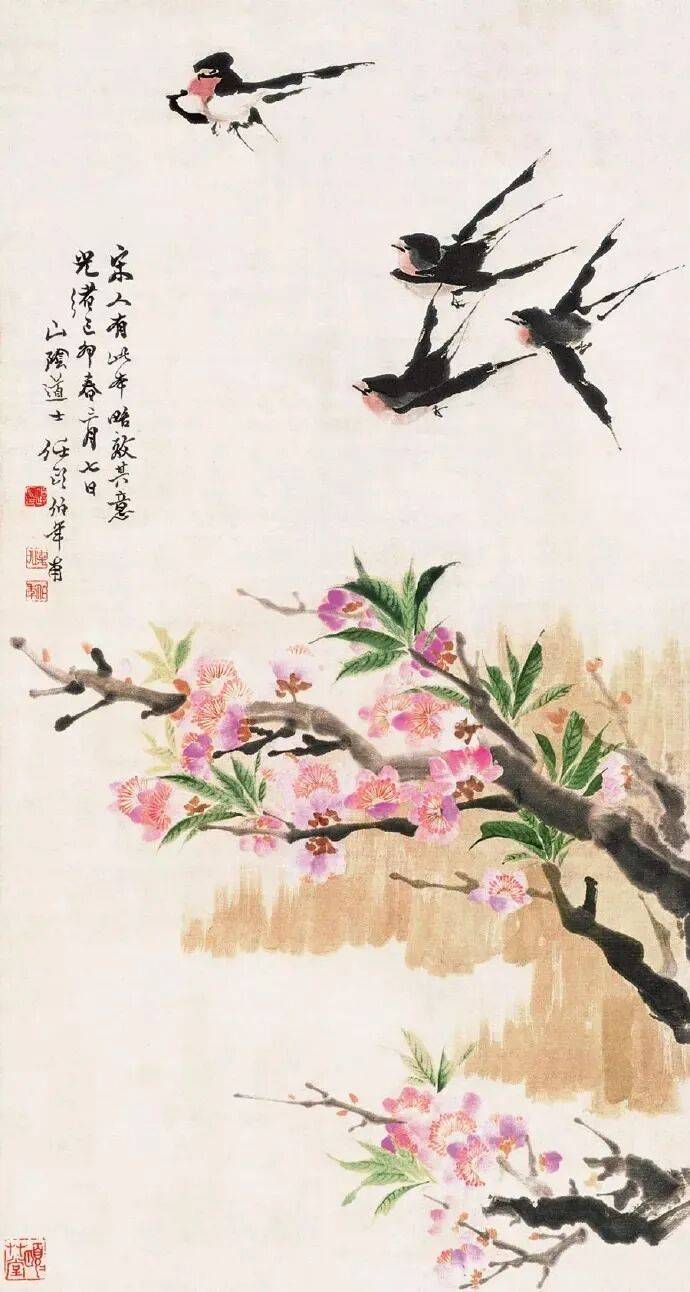 宋人有此本略效其意
光绪己卯春二月七日
山陰道士任頤伯年甫
頌竹堂